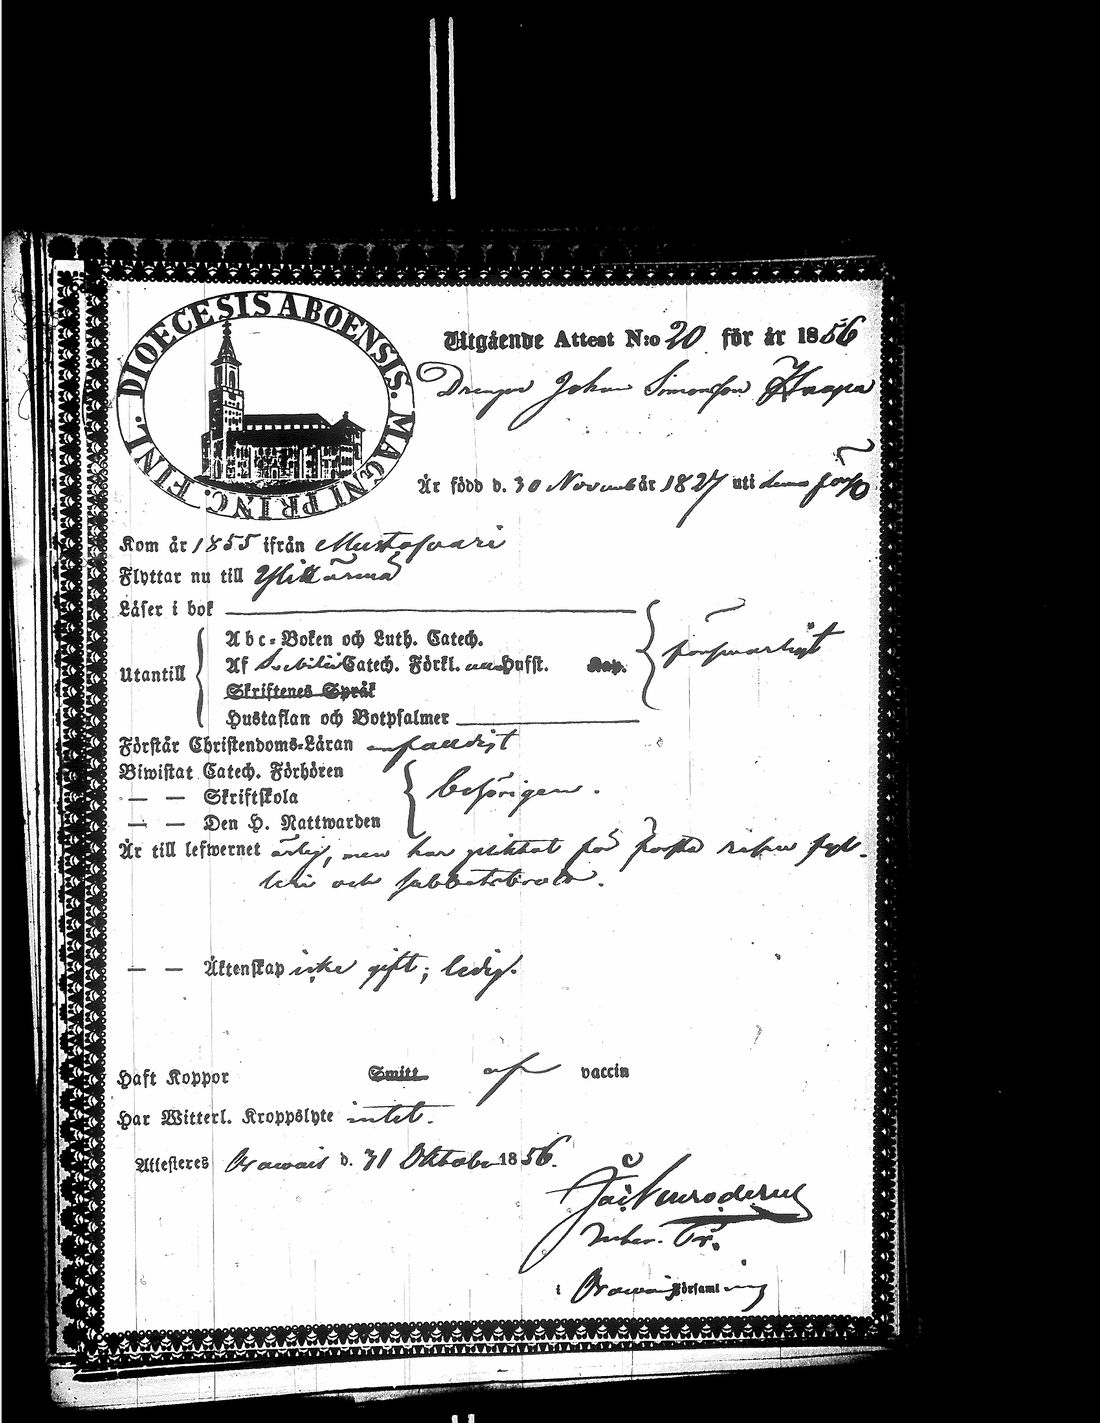 DIOECESIS ABOENSIS. MAGNI PRINC. FINL.
Utgående Attest N:o 20 för år 1856
Drengen Johan Simonsson Haapa
Är född d. 30 Novemb år 1827 uti denna förs
Kom år 1855 ifrån Mustasaari
Flyttar nu till Ylikärmä
Läser i bok
Abc-Boken och Luth. Catech.
Utantill
Af Svebilii Catech. Förkl. Husst. Kap.
försvarligt
Skriftenes Språk
Hustaflan och Botpsalmer
Förstår Christendoms-Läran enfaldigt
Biwistat Catech. Förhören
— — Skriftskola
behörigen.
— — Den H. Nattwarden
Är till lefwernet ärlig, men har pliktat för första resan fyl-
leri och sabbatsbrott.
— — Äktenskap icke gift; ledig.
Haft Koppor Smitt af vaccin
Har Witterl. Kroppslyte intet.
Attesteres Orawais d. 31 Oktober 1856.
Pr.
i Orawais Församling